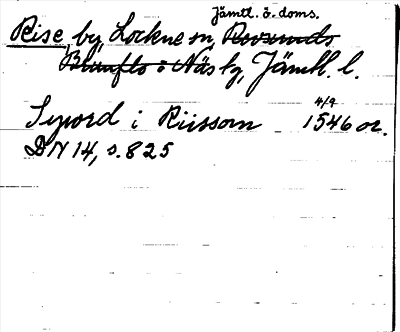 Jämtl. ö. doms.
Rise, by, Lockne sn, Revsunds
Brunflo o Näs tg, Jämtl. l.
Sywrd i Riissom 4/9 1546 or.
DN 14, s. 825